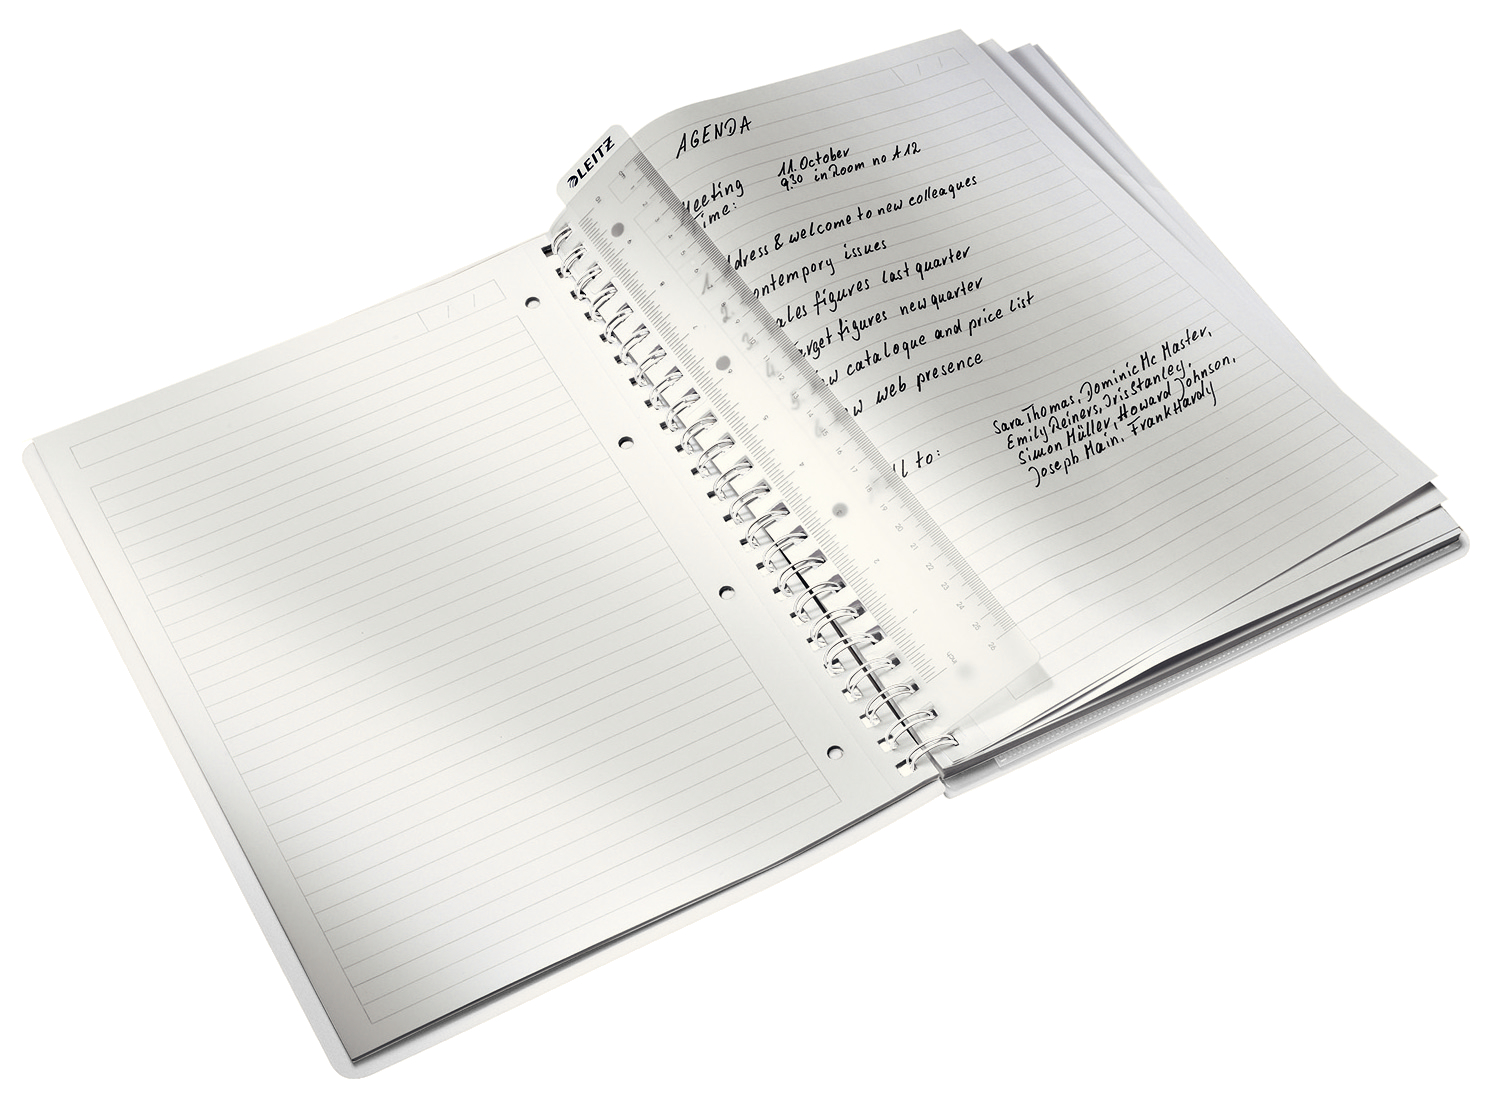 LEITZ
AGENDA
Meeting 11. October
Time: 9.30 in Room no A 12
1. Address & welcome to new colleagues
2. Contempory issues
3. Sales figures last quarter
4. Target figures new quarter
5. New catalogue and price list
6. New web presence
to: Sara Thomas, Dominic Mc Master,
Emily Reiners, Iris Stanley,
Simon Müller, Howard Johnson,
Joseph Main, Frank Hardy